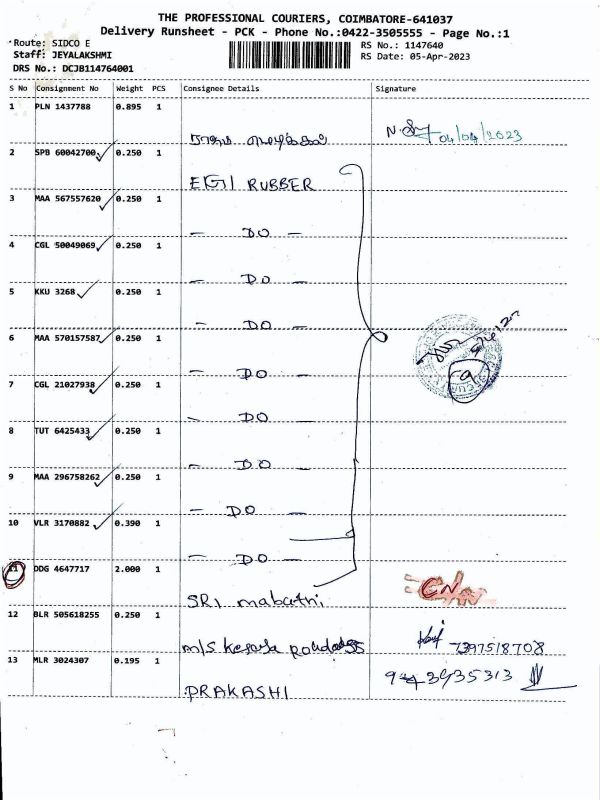 THE PROFESSIONAL COURIERS, COIMBATORE-641037
Delivery Runsheet - PCK - Phone No.:0422-3505555 - Page No.:1
Route: SIDCO E
RS No.: 1147640
Staff: JEYALAKSHMI
RS Date: 05-Apr-2023
DRS No.: DCJB114764001
S No Consignment No Weight PCS Consignee Details Signature
1 PLN 1437788 0.895 1
04/04/2023
2 SPB 60042700 0.250 1
RUBBER
3 MAA 567557620 0.250 1
- DO -
4 CGL 50049069 0.250 1
- DO -
5 KKU 3268 0.250 1
- DO -
6 MAA 570157587 0.250 1
- DO -
7 CGL 21027938 0.250 1
- DO -
8 TUT 6425433 0.250 1
- DO -
9 MAA 296758262 0.250 1
- DO -
10 VLR 3170882 0.390 1
- DO -
11 DDG 4647717 2.000 1
SRI
12 BLR 505618255 0.250 1
M/S 7397518708
13 MLR 3024307 0.195 1
PRAKASHI